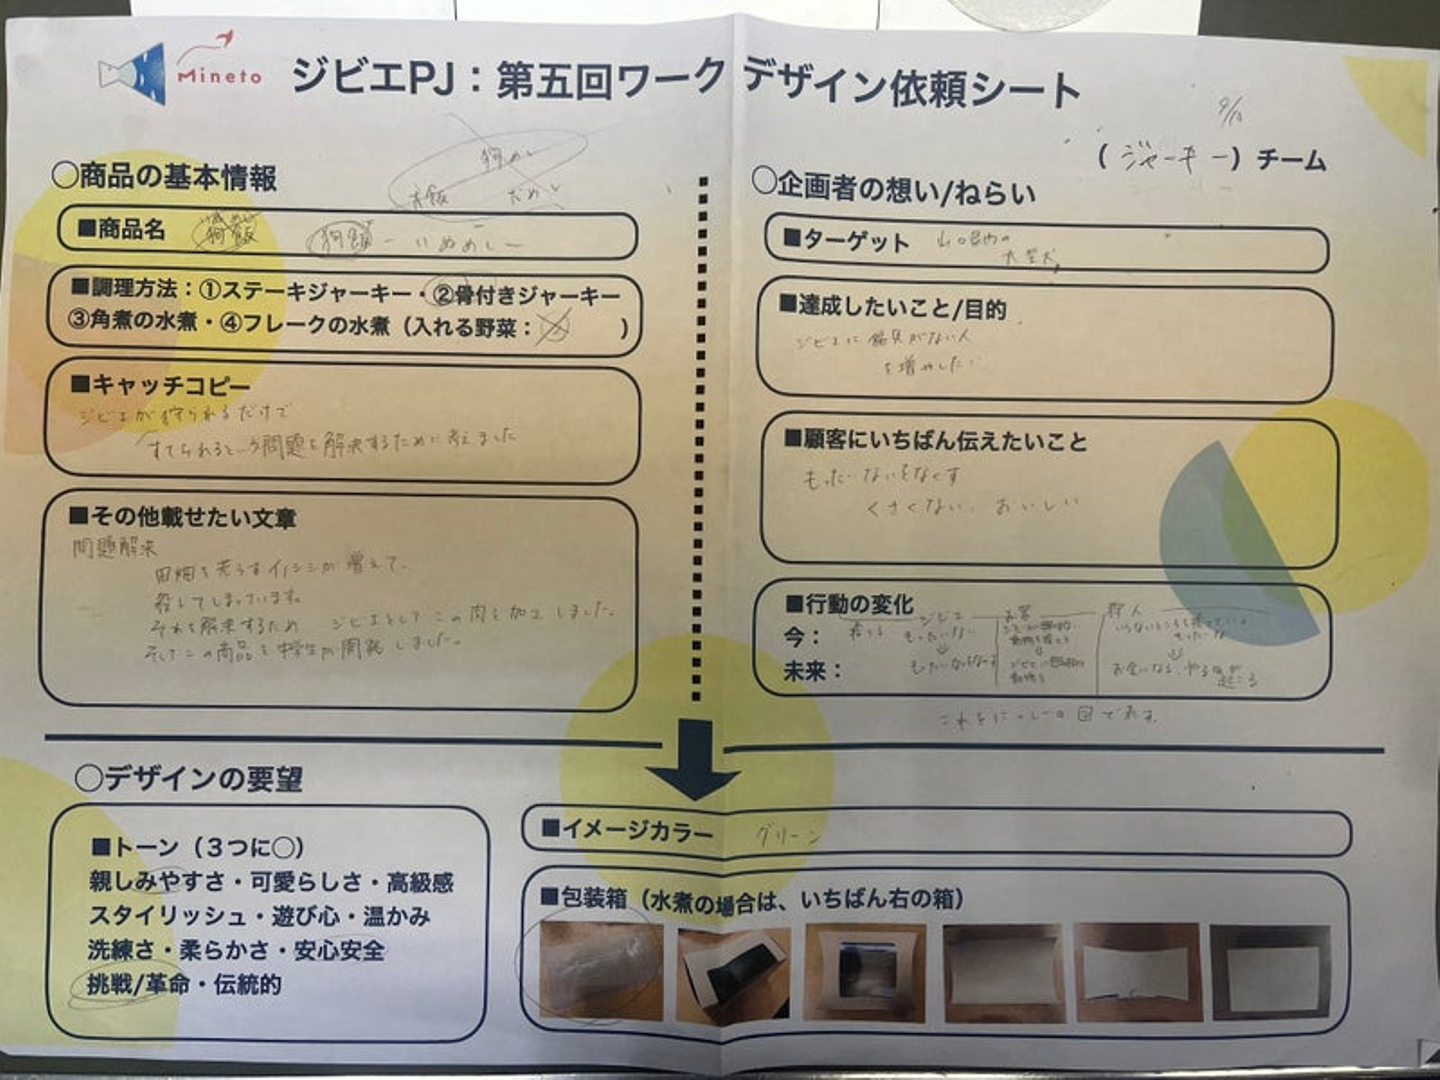 Mineto
ジビエPJ：第五回ワーク デザイン依頼シート
9/10
（ジャーキー）チーム
○商品の基本情報
■商品名 狗飯 ーいぬめしー
■調理方法：①ステーキジャーキー・②骨付きジャーキー
③角煮の水煮・④フレークの水煮（入れる野菜： ）
■キャッチコピー
ジビエが狩られるだけで
すてられるという問題を解決するために考えました
■その他載せたい文章
問題解決
田畑を荒らすイノシシが増えて、
殺してしまっています。
それを解決するため ジビエとしてこの肉を加工しました。
そしてこの商品を中学生が開発しました。
○企画者の想い/ねらい
■ターゲット 山口県内の
大型犬
■達成したいこと/目的
ジビエに偏見がない人
を増やしたい
■顧客にいちばん伝えたいこと
もったいないをなくす
くさくない、おいしい
■行動の変化 ジビエ お客 狩人
今： 捨てる もったいない
未来： お金になる、やる気が
起こる
○デザインの要望
■トーン（３つに○）
親しみやすさ・可愛らしさ・高級感
スタイリッシュ・遊び心・温かみ
洗練さ・柔らかさ・安心安全
挑戦/革命・伝統的
■イメージカラー グリーン
■包装箱（水煮の場合は、いちばん右の箱）